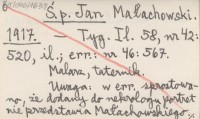 Śp. Jan Małachowski.
1917. — Tyg. Il. 58, nr 42:
520, il.; err.: nr 46: 567.
Malarz, taternik.
Uwaga: w err. sprostowa-
no, że dodany do nekrologu portret
nie przedstawia Małachowskiego.